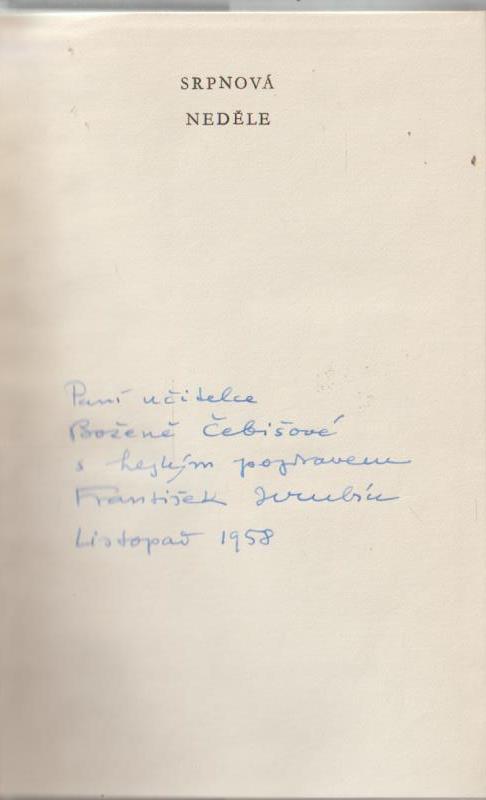 SRPNOVÁ
NEDĚLE
Paní učitelce
Boženě Čebišové
s hezkým pozdravem
František Hrubín
Listopad 1958